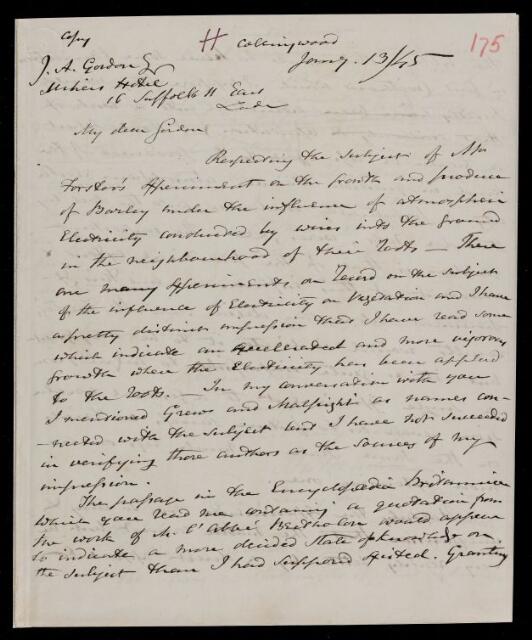 Copy
H Collingwood
175
Jany. 13/45
J. A. Gordon Esq
Hotel
16 Suffolk St East
My dear Gordon
Respecting the subject of Mr
Forster's Experiment on the Growth and produce
of Barley under the influence of atmospheric
Electricity conducted by wires into the Ground
in the neighbourhood of their roots — There
are many Experiments on Record on the subject
of the influence of Electricity on Vegetation and I have
a pretty distinct impression that I have read some
which indicate an accelerated and more vigorous
Growth where the Electricity has been applied
to the roots. — In my conversation with you
I mentioned Grew and Malpighi as names con-
-nected with the subject and I have not succeeded
in verifying those authors as the sources of my
impression.
The passage in the Encyclopædia Britannica
which you read me containing a quotation from
the work of M. l'Abbé would appear
to indicate a more decided state of knowledge on
the subject than I had supposed existed. Granting